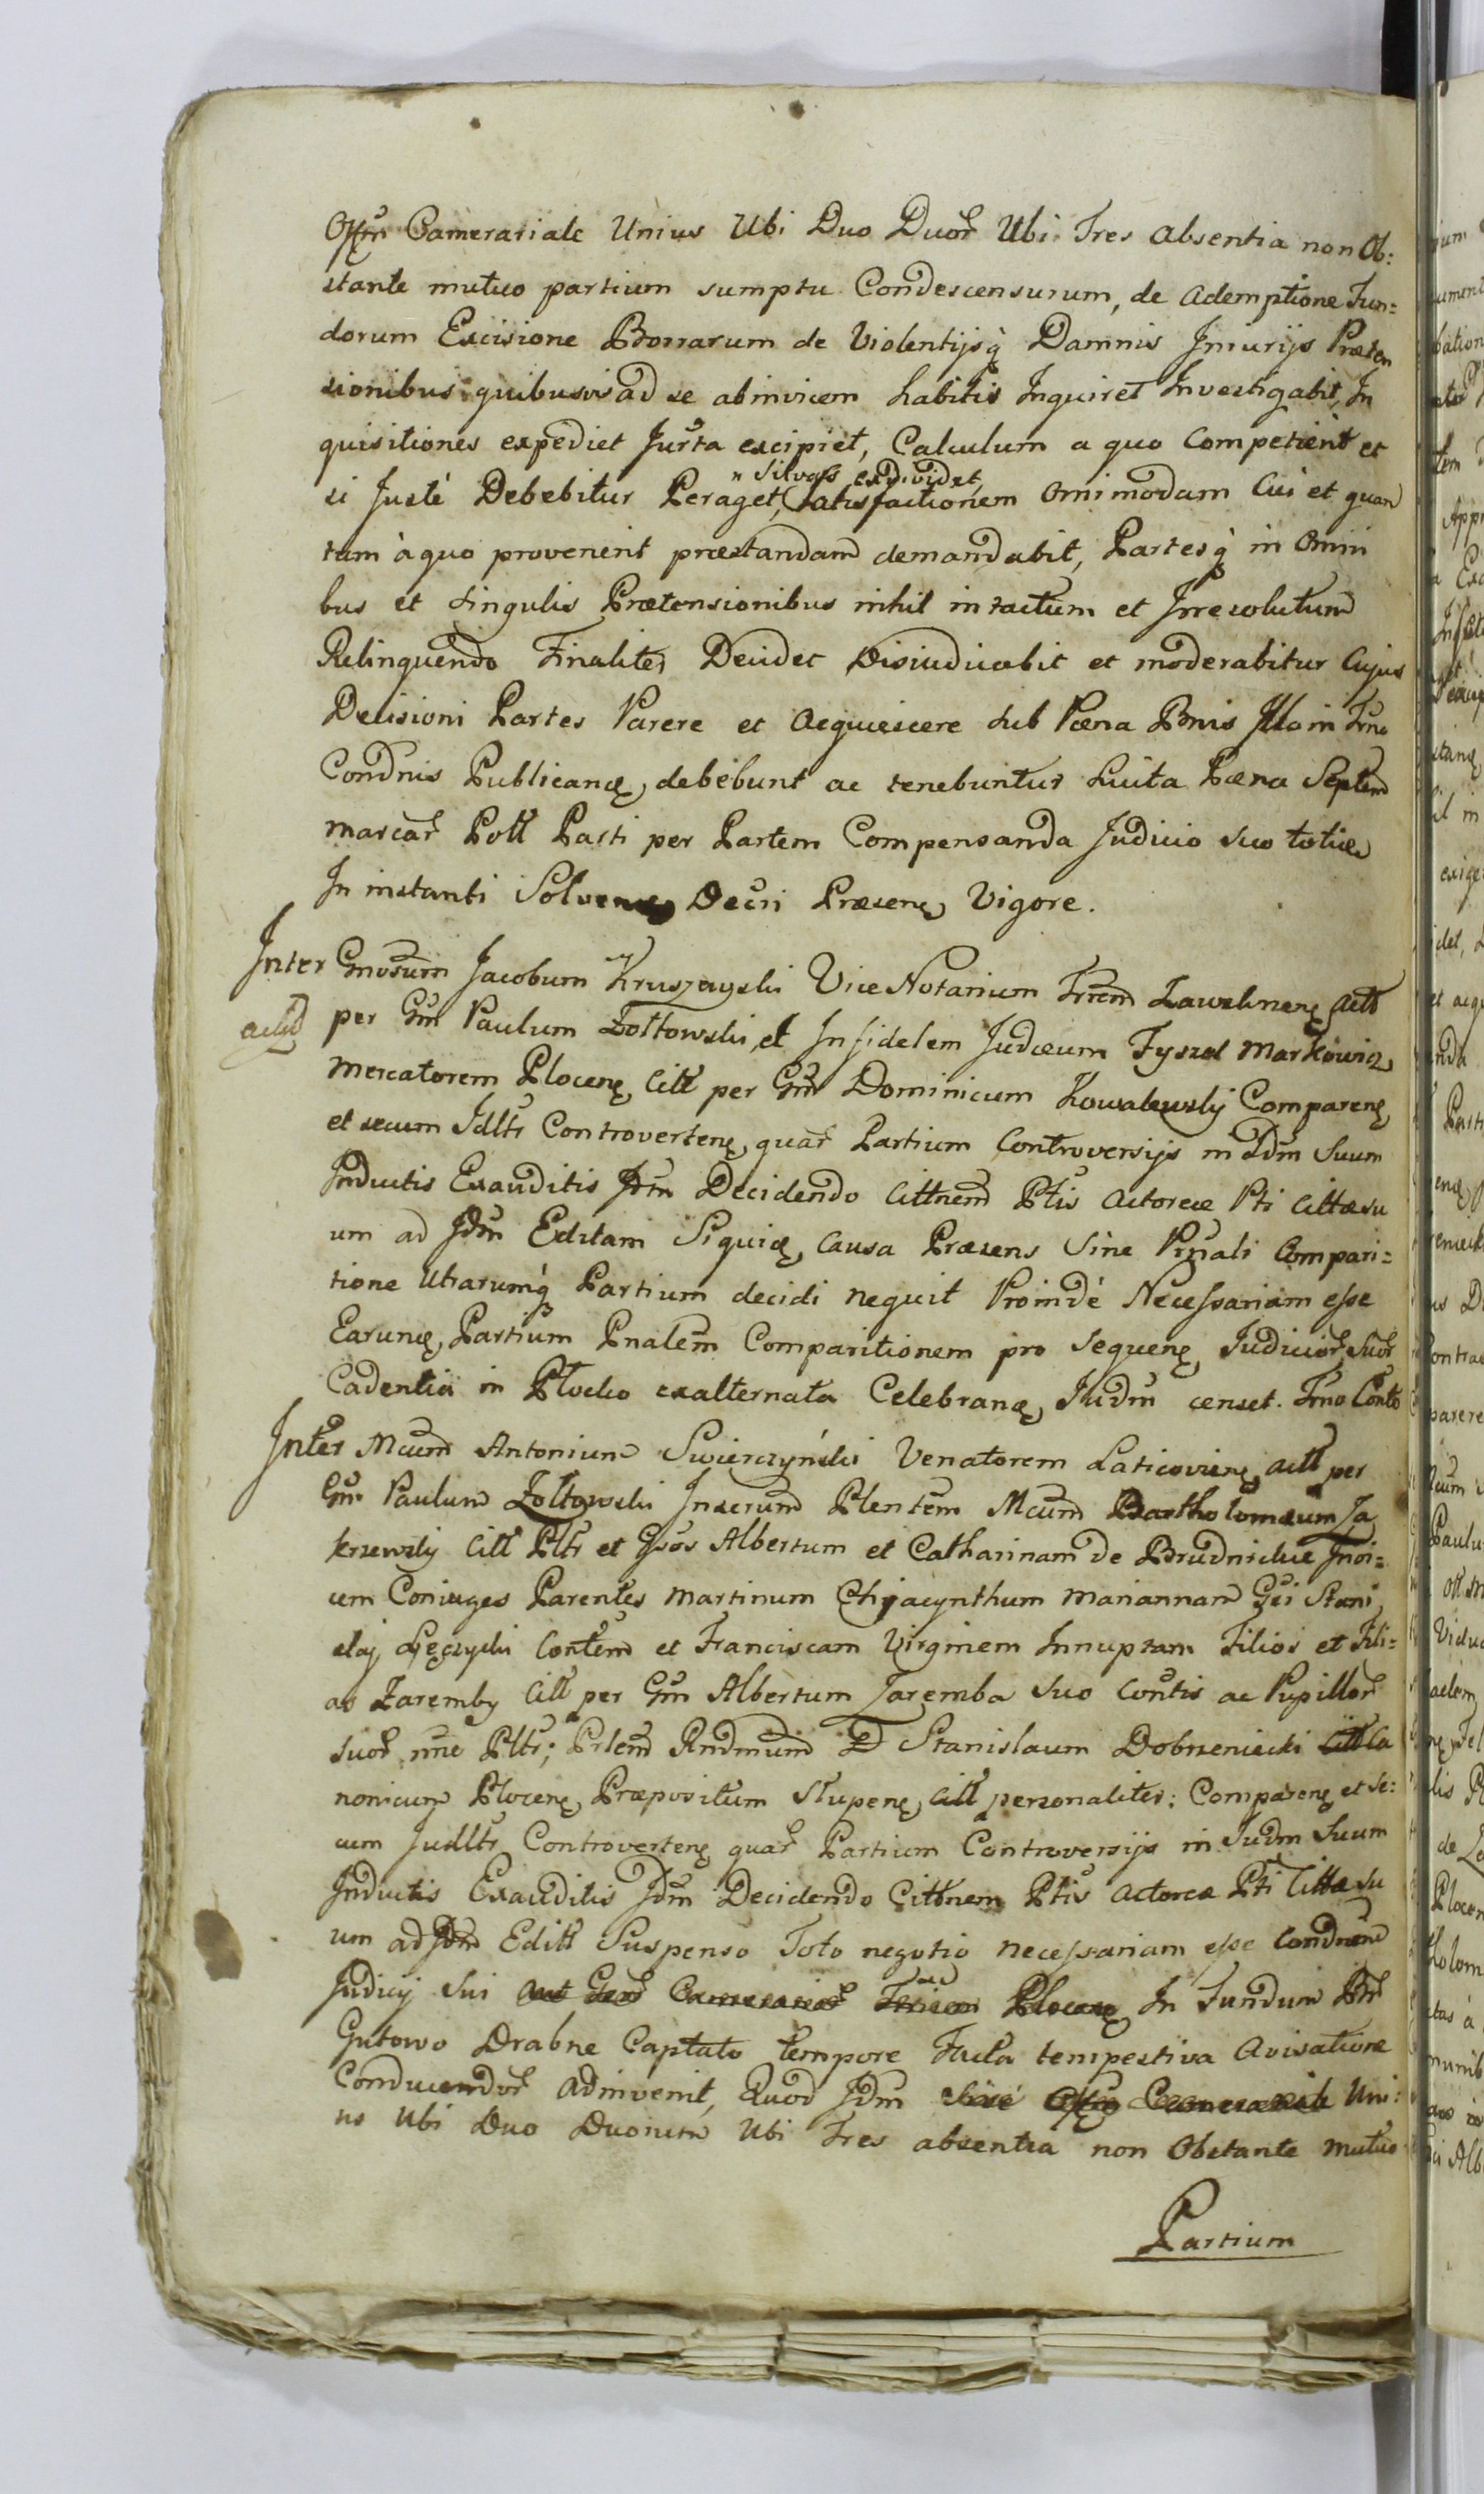 Offm Camerariale Unius Ubi Duo Duor Ubi Tres Absentia non Ob:
stante mutuo partium sumptu Condescensurum, de Ademptione Fun=
dorum Excisione Borrarum de Violentijsq Damnis Injurijs Præten
sionibus quibusvis ad se abinvicem habitis Inquiret Investigabit, In
quisitiones expediet Iurta excipiet, Calculum a quo Competient et
" Silvass exdividet
si Justé Debebitur Peraget, Satisfactionem Omnimodam Cui et quan
tam à quo provenerit præstandam demandabit, Partesq in Omni
bus et singulis Prætensionibus nihil intactum et Irresolutum
Relinquendo Finaliter Decidet Disiudicabit et moderabitur Cujus
Decisioni Partes Parere et Acquiescere sub Pæna Bnis Illo in Trno
Condnis Publicanę, debebunt ac tenebuntur Luita Pæna Septem
marcar Poll Parti per Partem Compensanda Judicio suo toties
In instanti Solvenę Decri Præsenę Vigore.
Inter Gnosum Jacobum Kruszeyski Vice Notarium Trrem Zawskrnenę Actt
per Gm Paulum Zołtowski, et Infidelem Judæum Fyszel Markowicz
mercatorem Plocenę Citt per Gm Dominicum Kowalewsky Comparenę
et secum Jdltr Controvertenę, quar Partium Controversijs in Jdm Suum
Inductis Exauditis Jdm Decidendo Cittnem Ptis Actoreæ Pti Cittæ su
um ad Jdm Editam Siquię, Causa Præsens Sine Prnali Compari=
tione Utrarumq Partium decidi nequit Proindé Necessariam esse
Earunę, Partium Pnalem Comparitionem pro Sequenę, Judicior, Suor
Cadentia in Płocko exalternata Celebranę, Judm censet. Trno Conto
Inter Mcum Antonium Swierczyński Venatorem Laticoviensę actt per
Gm Paulum Zołtowski Inserum Plentem Mcum Bartholomæum Ja
krzewsky Citt Pltr et Gsos Albertum et Catharinam de Brudnickie Invi=
cem Coniuges Parentes Martinum Chijacynthum Mariannam Gsi Stani
slaj Contem et Franciscam Virginem Innuptam Filios et Fili=
as Zaremby Citt per Gm Albertum Zaremba Suo Contis ac Pupillor
suor nne Pltr; Prlem Rndmum D Stanislaum Dobrzeniecki Citt Ca
nonicum Plocenę, Præpositum Slupenę, Citt personaliter: Comparenę et se:
cum Judltr Controvertenę quar Partium Controversijs in Judm Suum
Inductis Exauditis Jdm Decidendo Cittnem Ptis Actoreæ Pti Cittæ su
um ad Jdm Editt Suspenso Toto negotio necessariam esse Condnem
Judicij sui aut Gsor Camerarior Plocenę In Fundum Bnr
Gutowo Drabne Captato tempore Facta tempestiva Avisatione
Conducendor Adinvenit, Quod Jdm Sivé Offm Camerariale Uni:
us Ubi Duo Duorum Ubi Tres absentia non Obstante mutuo
Partium